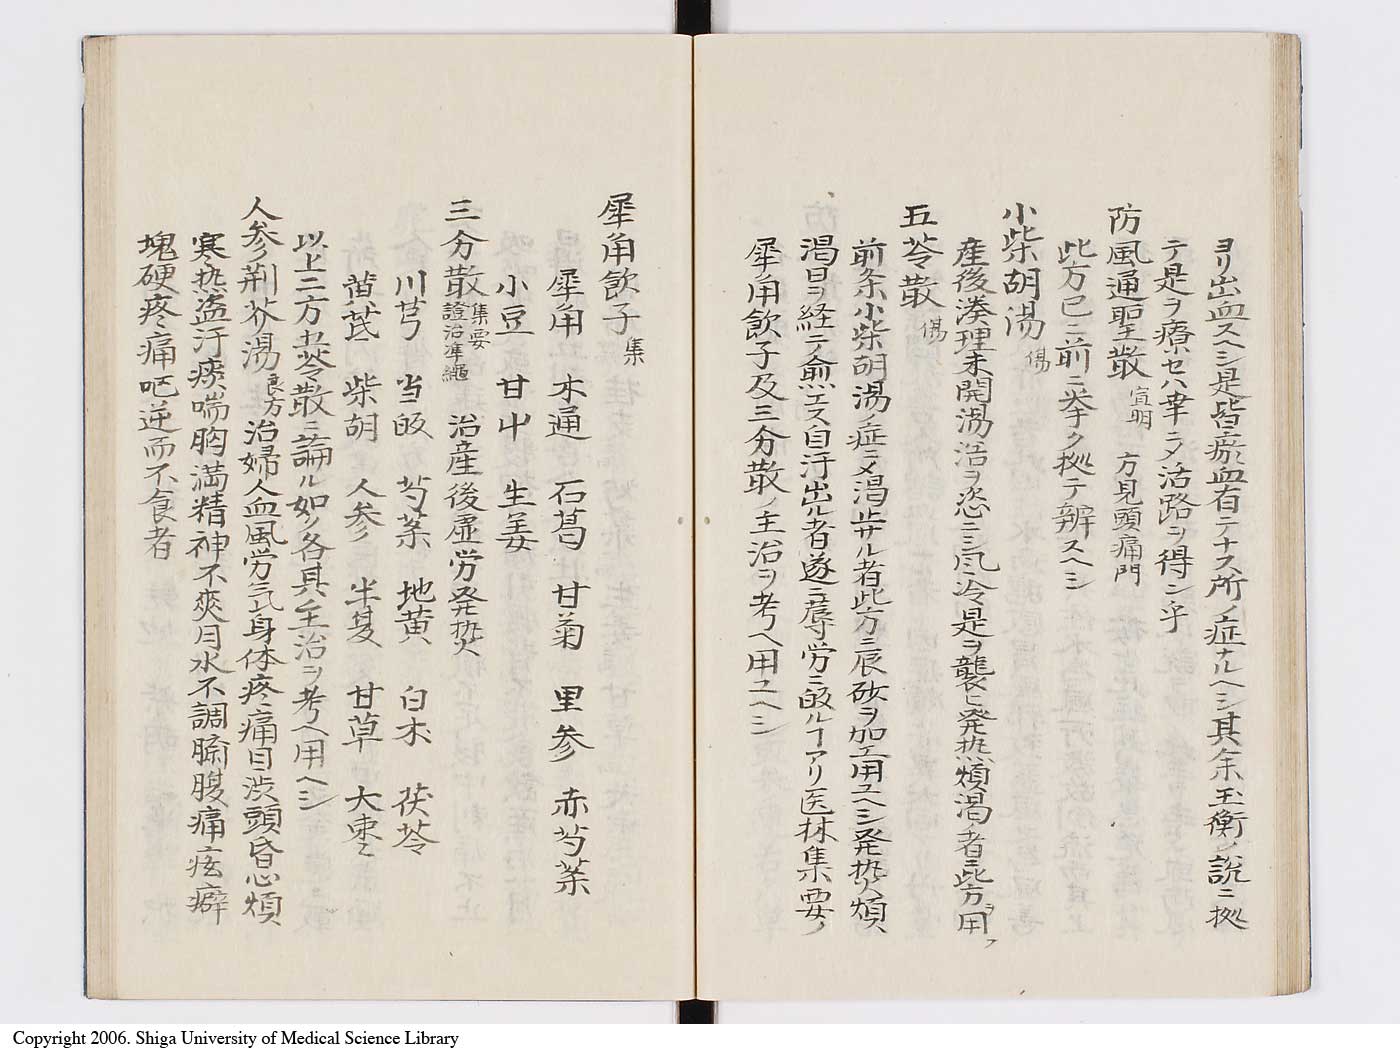 ヨリ出血スヘシ是皆瘀血有テナス所ノ症ナルヘシ其余玉衡ノ説ニ拠
テ是ヲ療セハ幸ニ〆活路ヲ得ン乎
防風通聖散 宣明 方見頭痛門
此方已ニ前ニ挙ク拠テ辨スヘシ
小柴胡湯 傷
産後湊理未開湯浴ヲ恣ニシ風冷是ヲ襲ヒ発熱煩渇者ニ此方ヲ用ノ
五苓散 傷
前条小柴胡湯ノ症ニ〆渇止サル者此方ニ辰砂ヲ加エ用ユヘシ発熱煩
渇日ヲ経テ愈エス自汗出ル者遂ニ蓐労ニ皈ルヿアリ医林集要ノ
犀角飲子及三分散ノ主治ヲ考ヘ用ユヘシ
犀角飲子 集
犀角 木通 石葛 甘菊 里参 赤芍薬
小豆 甘屮 生姜
三分散 集要 證治準繩 治産後虚労発熱
川芎 当皈 芍薬 地黄 白朮 茯苓
黄芪 柴胡 人参 半夏 甘草 大棗
以上二方五苓散ニ論ル如ク各其主治ヲ考ヘ用ヘシ
人参荊芥湯 良方 治婦人血風労気身体疼痛目渋頭昏心煩
寒热盗汗痰喘胸満精神不爽月水不調臍腹痛痃癖
塊硬疼痛呕逆而不食者
Copyright 2006. Shiga University of Medical Science Library